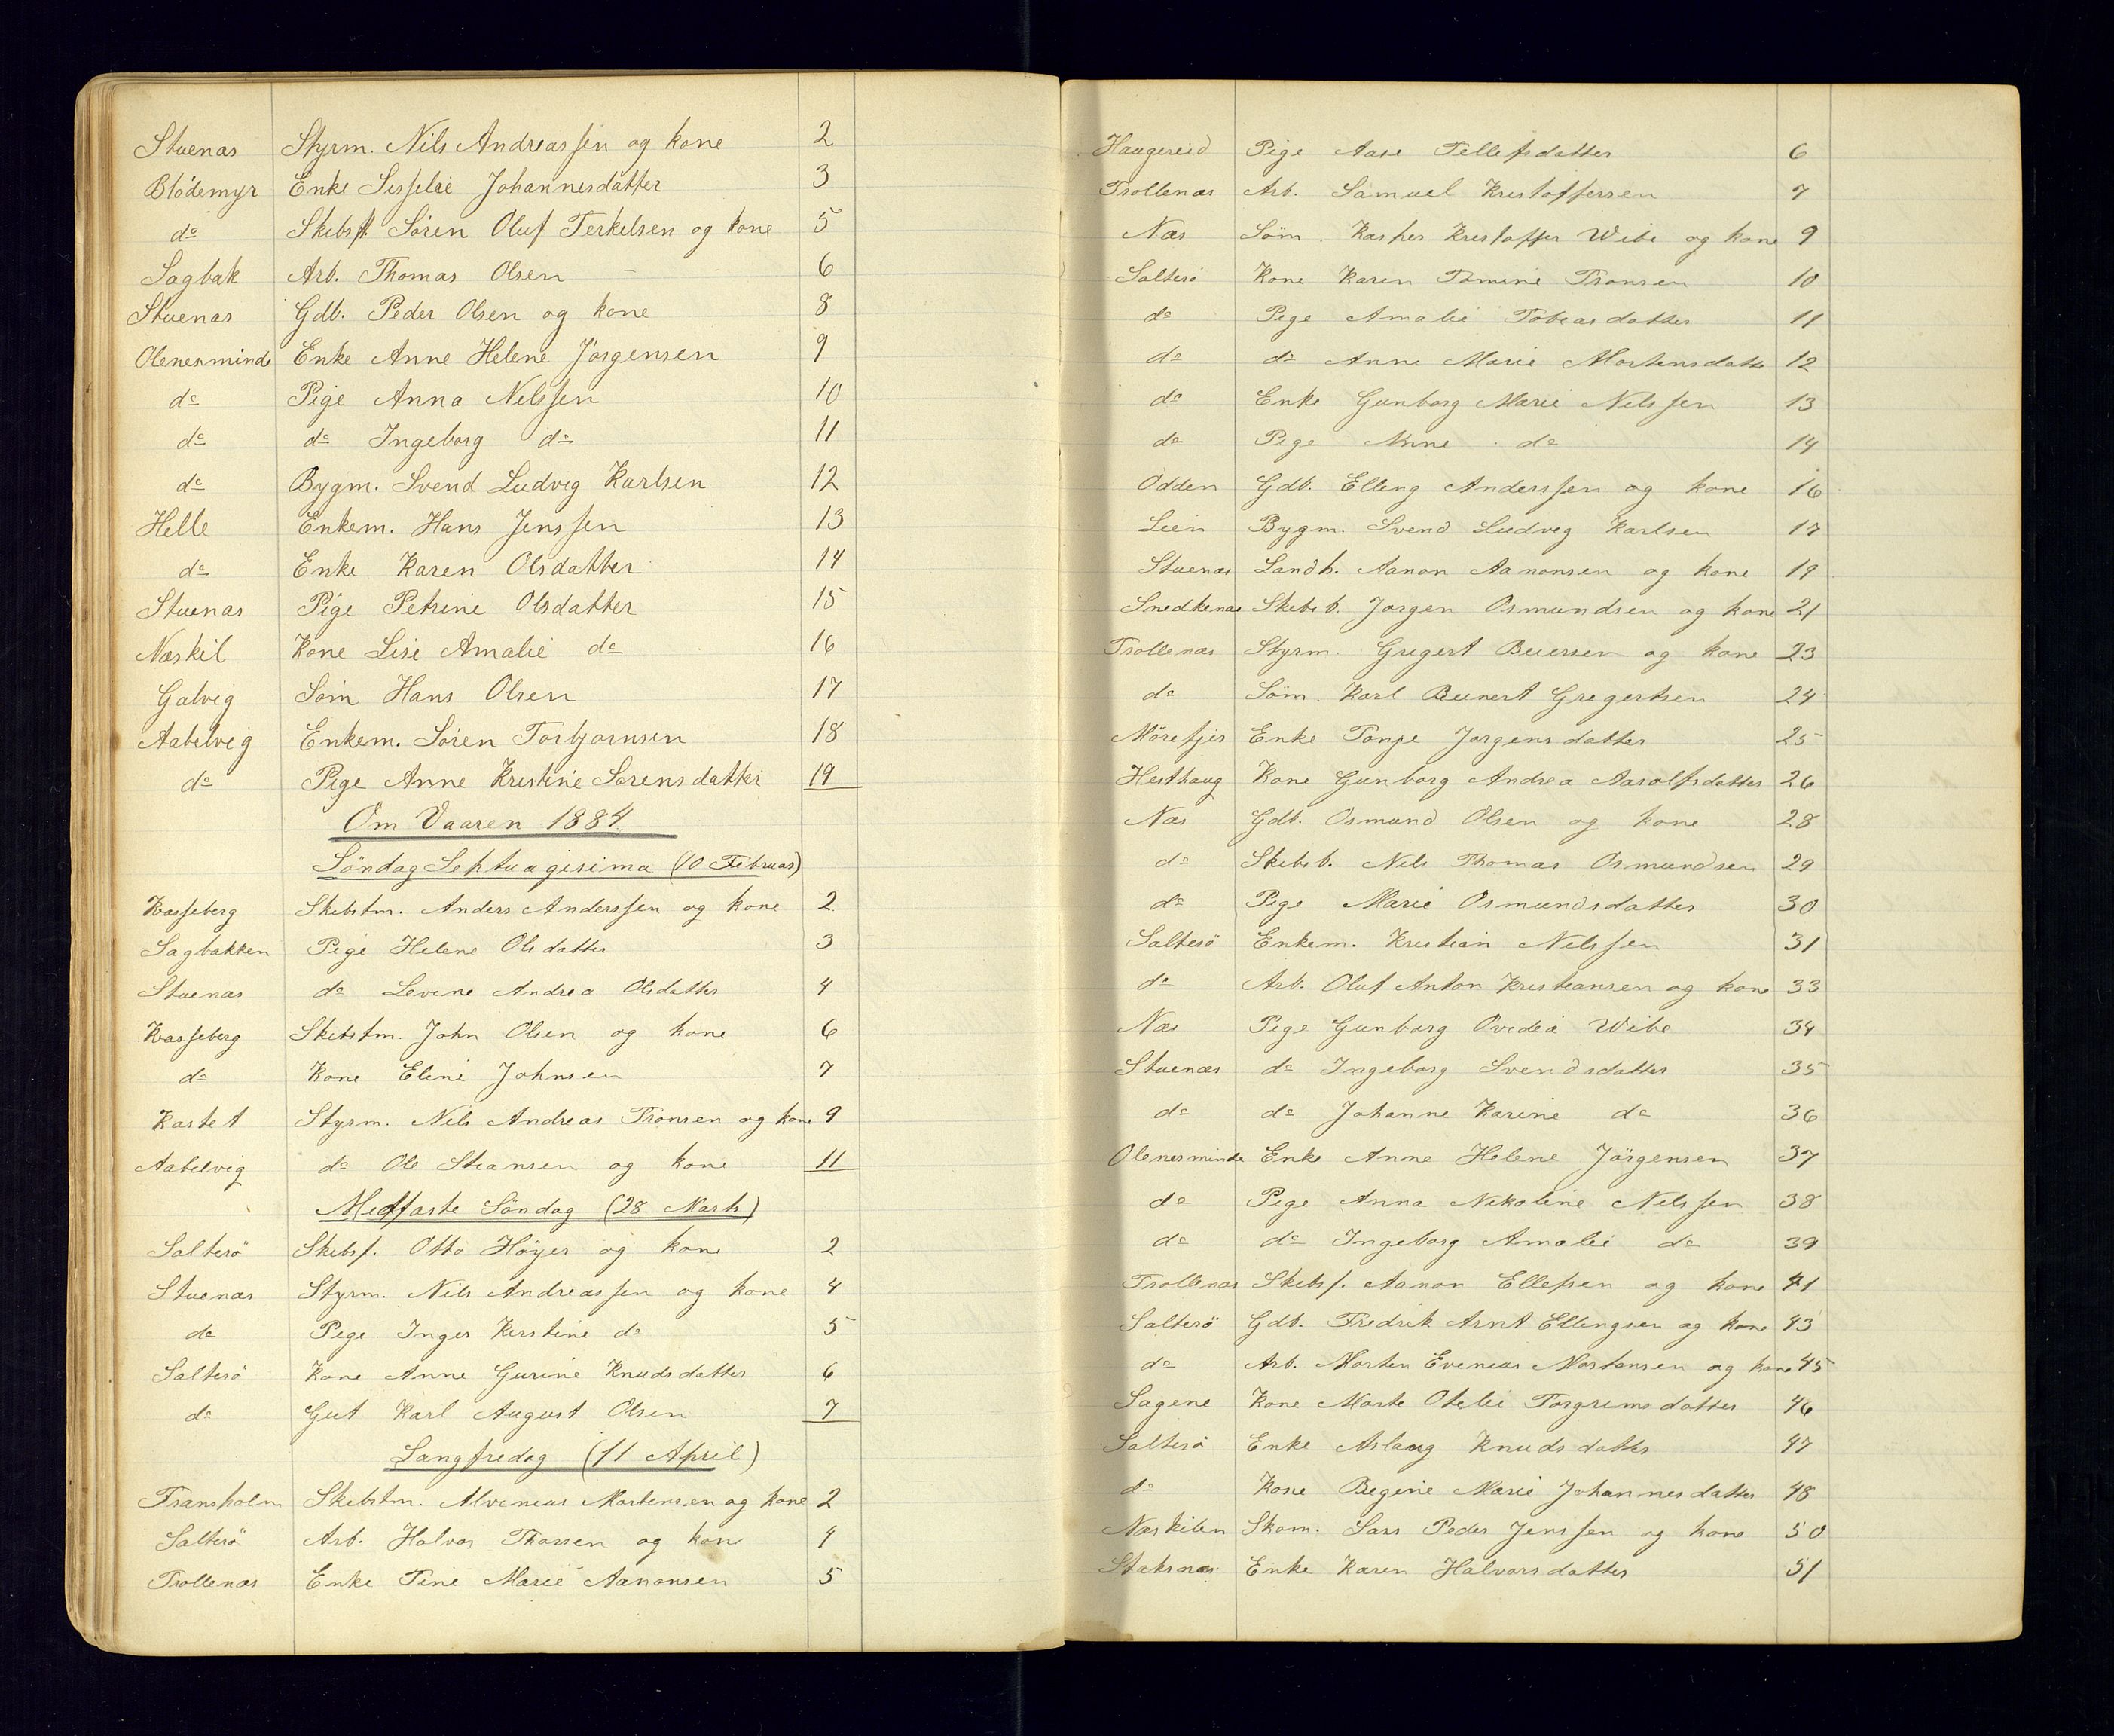 Stuenæs Styrm. Nils Andreassen og kone 2
Blødemyr Enke Sisselie Johannesdatter 3
do Skibsf. Søren Oluf Terkelsen og kone 5
Sagbak Arb. Thomas Olsen 6
Stuenæs Gdb. Peder Olsen og kone 8
Olenesminde Enke Anne Helene Jørgensen 9
do Pige Anna Nilssen 10
do do Ingeborg do 11
do Bygm. Svend Ludvig Karlsen 12
Helle Enkem. Hans Jenssen 13
do Enke Karen Olsdatter 14
Stuenæs Pige Petrine Olsdatter 15
Næskil Kone Lise Amalie do 16
Galvig Søm Hans Olsen 17
Aabelvig Enkem. Søren Torbjørnsen 18
do Pige Anne Kristine Sørensdatter 19
Om Vaaren 1884.
Søndag Septuagesima (10 Februar)
Kasseberg Skibstm. Anders Anderssen og kone 2
Sagbakken Pige Helene Olsdatter 3
Stuenæs do Levine Andrea Olsdatter 4
Kasseberg Skibstm. John Olsen og kone 6
do Kone Eline Johnsen 7
Kastet Styrm. Nils Andreas Tronsen og kone 9
Aabelvig do Ole Stiansen og kone 11
Midfaste Søndag (28 Marts)
Salterø Skibsf. Otto Høyer og kone 2
Stuenæs Styrm. Nils Andreassen og kone 4
do Pige Inger Kirstine do 5
Salterø Kone Anne Gurine Knudsdatter 6
do Gut Karl August Olsen 7
Langfredag (11 April)
Fransholm Skibstm. Alvenius Mortensen og kone 2
Salterø Arb. Halvor Thorsen og kone 4
Trollenæs Enke Tine Marie Aanonsen 5
Haugereid Pige Aase Tellefsdatter 6
Trollenæs Arb. Samuel Kristoffersen 7
Næs Søm. Kasper Kristoffer Wibe og kone 9
Salterø Kone Karen Tomine Tronsen 10
do Pige Amalie Tobiasdatter 11
do do Anne Marie Mortensdatter 12
do Enke Gunborg Marie Nilssen 13
do Pige Anne do 14
Odden Gdb. Elling Anderssen og kone 16
Lien Bygm. Svend Ludvig Karlsen 17
Stuenæs Landh. Aanon Aanonsen og kone 19
Snedkenæs Skibsb. Jørgen Osmundsen og kone 21
Trollenæs Styrm. Gregert Beiersen og kone 23
do Søm. Karl Beinert Gregertsen 24
Mørefjer Enke Tonje Jørgensdatter 25
Hesthaug Kone Gunborg Andrea Aasolfsdatter 26
Næs Gdb. Osmund Olsen og kone 28
do Skibsb. Nils Thomas Osmundsen 29
do Pige Marie Osmundsdatter 30
Salterø Enkem. Kristian Nilssen 31
do Arb. Oluf Anton Kristiansen og kone 33
Næs Pige Gunborg Ovedia Wibe 34
Stuenæs do Ingeborg Svendsdatter 35
do do Johanne Karine do 36
Olenesminde Enke Anne Helene Jørgensen 37
do Pige Anna Nikoline Nilssen 38
do do Ingeborg Amalie do 39
Trollenæs Skibsf. Aanon Ellefsen og kone 41
Salterø Gdb. Fredrik Arnt Ellingsen og kone 43
do Arb. Morten Evenius Mortensen og kone 45
Sagene Kone Marte Otelie Torgrimsdatter 46
Salterø Enke Aslaug Knudsdatter 47
do Kone Regine Marie Johannesdatter 48
Næskilen Skom. Lars Peder Jenssen og kone 50
Staksnæs Enke Karen Halvorsdatter 51